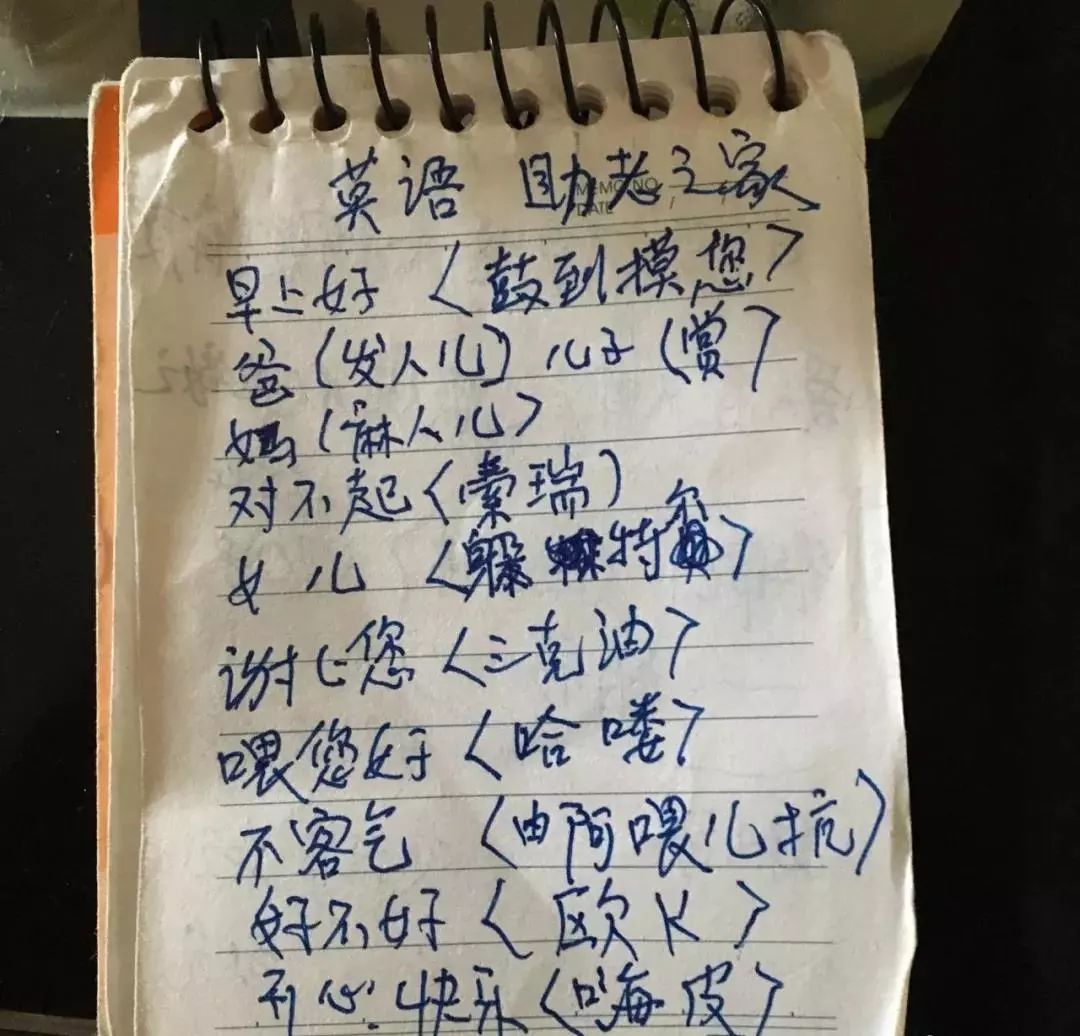 英语 助老之家
MEMO NO
DATE / /
早上好〈鼓到摸您〉
爸(发人儿)儿子(赏〉
妈(麻人儿〉
对不起〈索瑞)
女儿〈躲特尔〉
谢谢您〈三克油〉
喂您好〈哈喽〉
不客气〈由阿喂儿抗)
好不好〈欧K〉
开心快乐〈嗨皮〉